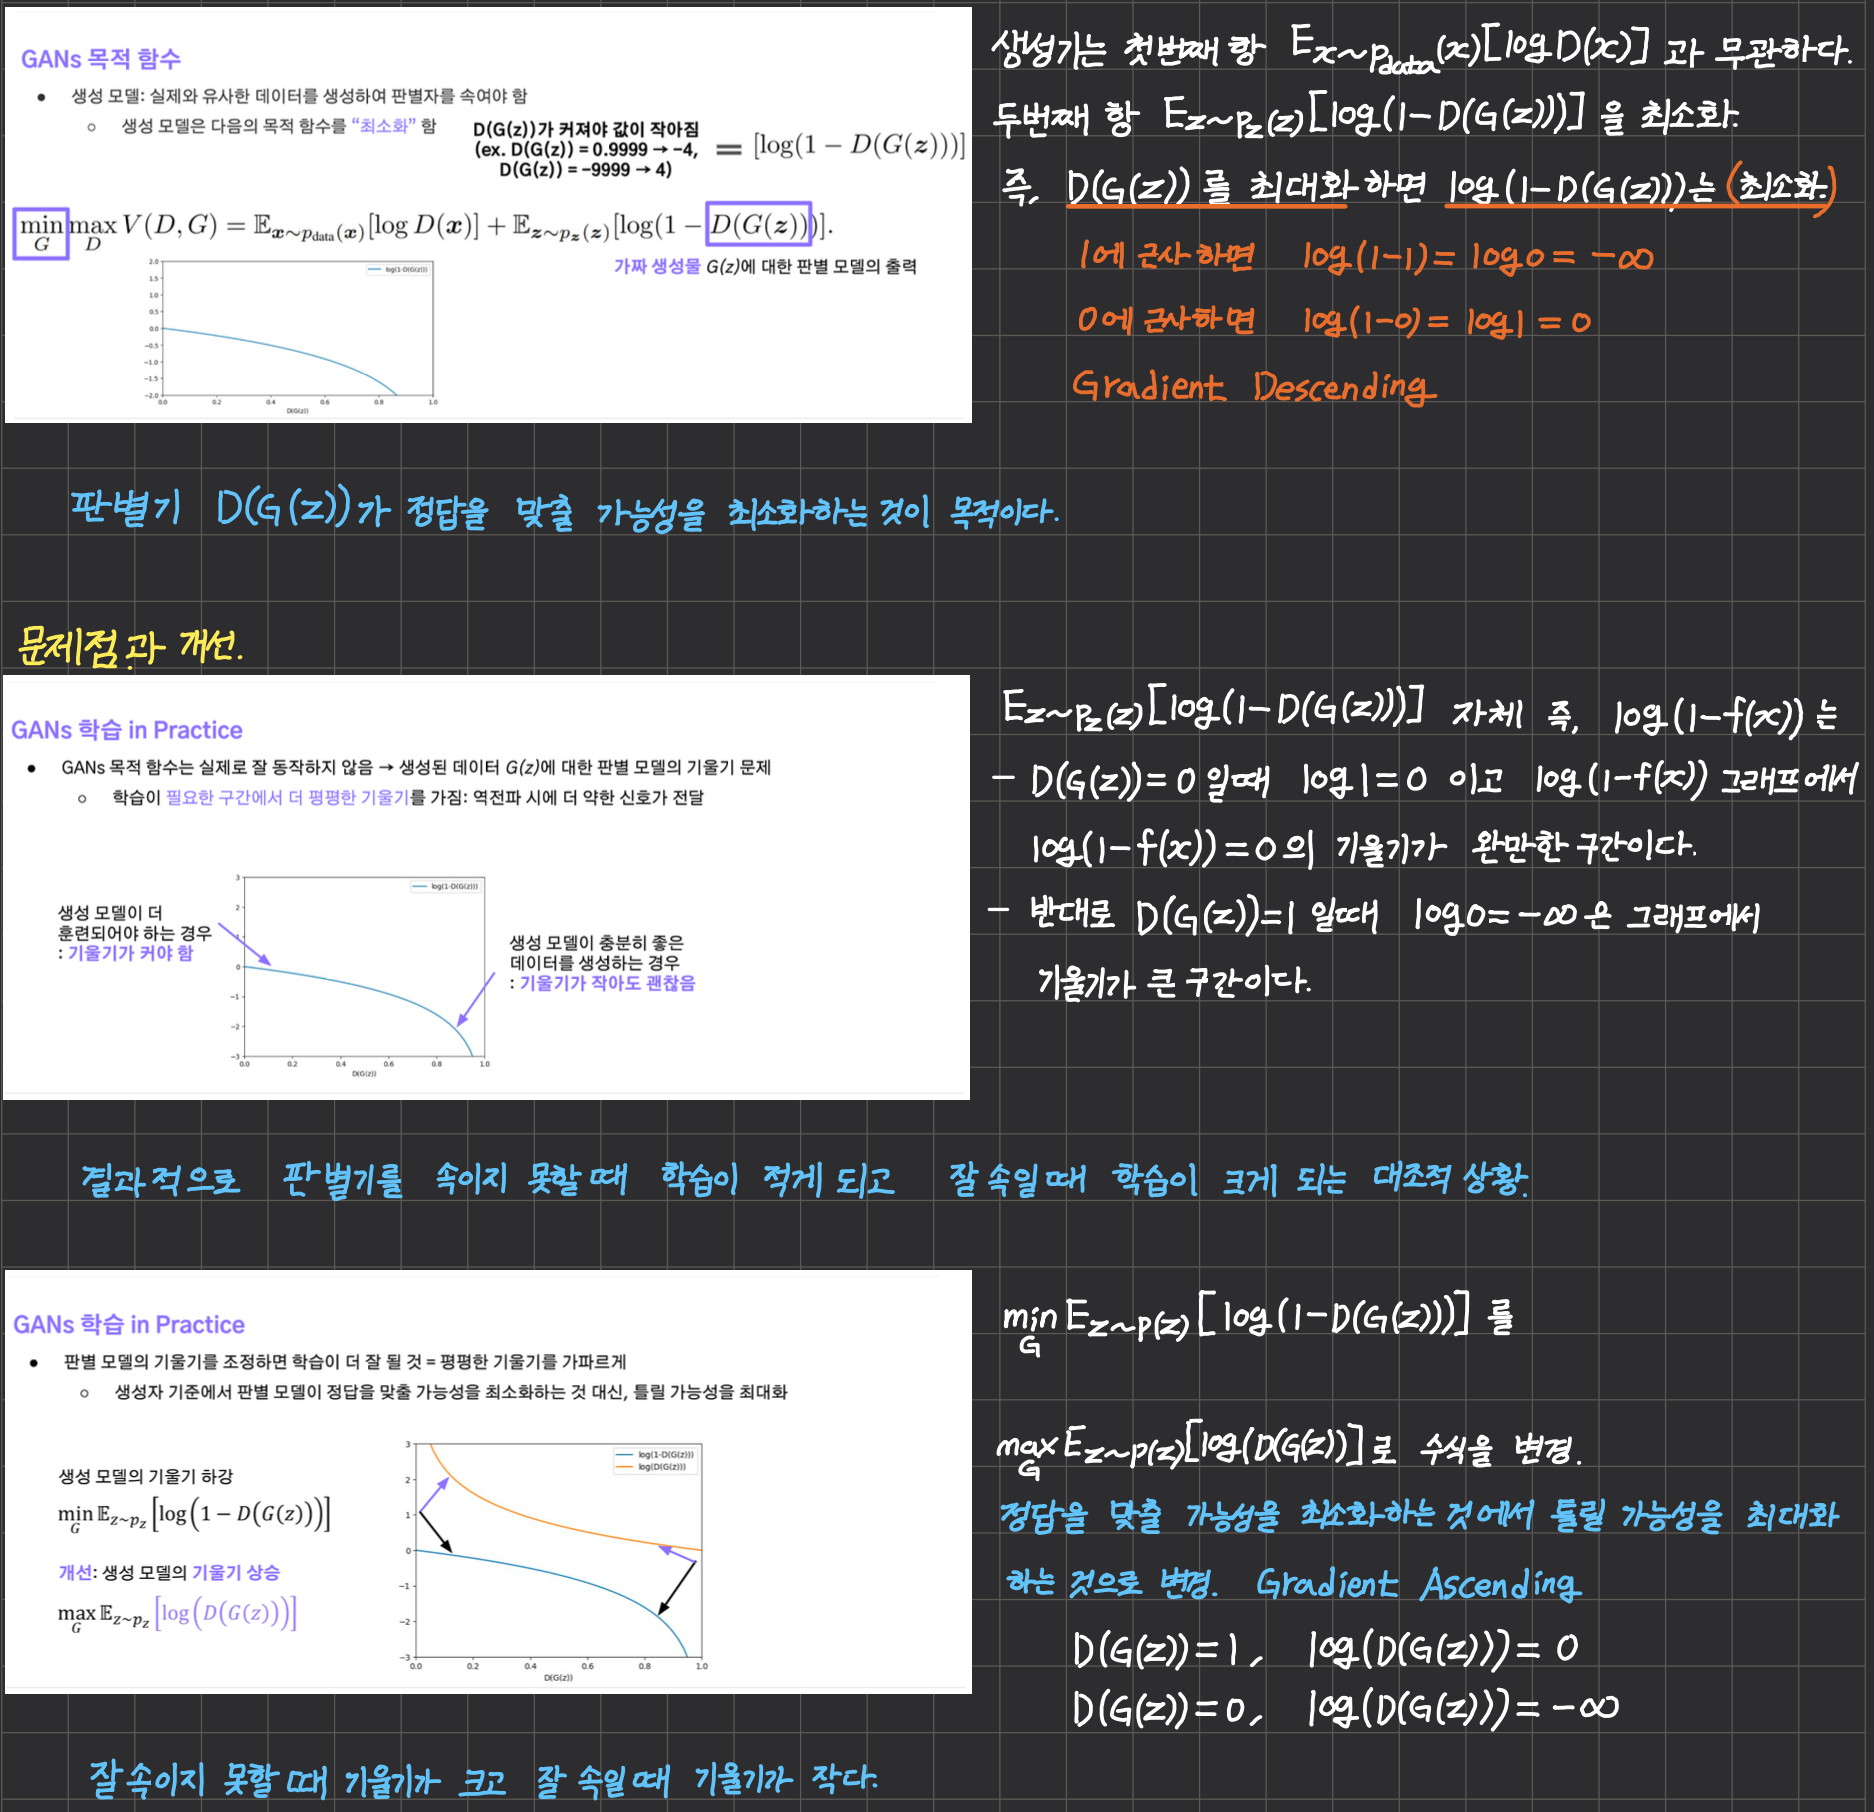 GANs 목적 함수
● 생성 모델: 실제와 유사한 데이터를 생성하여 판별자를 속여야 함
○ 생성 모델은 다음의 목적 함수를 “최소화” 함
D(G(z))가 커져야 값이 작아짐
(ex. D(G(z)) = 0.9999 → -4,
D(G(z)) = -9999 → 4)
= [log(1 − D(G(z)))]
min_G max_D V(D, G) = 𝔼_{x∼p_data(x)}[log D(x)] + 𝔼_{z∼p_z(z)}[log(1 − D(G(z)))].
가짜 생성물 G(z)에 대한 판별 모델의 출력
log(1-D(G(z)))
2.0
1.5
1.0
0.5
0.0
−0.5
−1.0
−1.5
−2.0
0.0 0.2 0.4 0.6 0.8 1.0
D(G(z))
생성기는 첫번째 항 E_{x~p_data}(x)[log D(x)] 과 무관하다.
두번째 항 E_{z~p_z}(z)[log(1-D(G(z)))] 을 최소화.
즉, D(G(z))를 최대화하면 log(1-D(G(z)))는 (최소화)
1에 근사하면 log(1-1) = log0 = -∞
0에 근사하면 log(1-0) = log1 = 0
Gradient Descending
판별기 D(G(z))가 정답을 맞출 가능성을 최소화하는 것이 목적이다.
문제점과 개선.
GANs 학습 in Practice
● GANs 목적 함수는 실제로 잘 동작하지 않음 → 생성된 데이터 G(z)에 대한 판별 모델의 기울기 문제
○ 학습이 필요한 구간에서 더 평평한 기울기를 가짐: 역전파 시에 더 약한 신호가 전달
생성 모델이 더
훈련되어야 하는 경우
: 기울기가 커야 함
log(1-D(G(z)))
3
2
1
0
−1
−2
−3
0.0 0.2 0.4 0.6 0.8 1.0
D(G(z))
생성 모델이 충분히 좋은
데이터를 생성하는 경우
: 기울기가 작아도 괜찮음
E_{z~p_z}(z)[log(1-D(G(z)))] 자체 즉, log(1-f(x))는
- D(G(z))=0 일때 log1=0 이고 log(1-f(x)) 그래프에서
log(1-f(x))=0의 기울기가 완만한 구간이다.
- 반대로 D(G(z))=1 일때 log0=-∞은 그래프에서
기울기가 큰 구간이다.
결과적으로 판별기를 속이지 못할때 학습이 적게 되고 잘 속일때 학습이 크게 되는 대조적 상황.
GANs 학습 in Practice
● 판별 모델의 기울기를 조정하면 학습이 더 잘 될 것 = 평평한 기울기를 가파르게
○ 생성자 기준에서 판별 모델이 정답을 맞출 가능성을 최소화하는 것 대신, 틀릴 가능성을 최대화
생성 모델의 기울기 하강
min_G 𝔼_{z∼p_z}[log(1 − D(G(z)))]
개선: 생성 모델의 기울기 상승
max_G 𝔼_{z∼p_z}[log(D(G(z)))]
log(1-D(G(z)))
log(D(G(z)))
3
2
1
0
−1
−2
−3
0.0 0.2 0.4 0.6 0.8 1.0
D(G(z))
min_G E_{z~p(z)}[log(1-D(G(z)))] 를
max_G E_{z~p(z)}[log(D(G(z))]로 수식을 변경.
정답을 맞출 가능성을 최소화하는 것에서 틀릴 가능성을 최대화
하는 것으로 변경. Gradient Ascending
D(G(z))=1, log(D(G(z)))= 0
D(G(z))=0, log(D(G(z)))= -∞
잘 속이지 못할 때 기울기가 크고 잘 속일때 기울기가 작다.